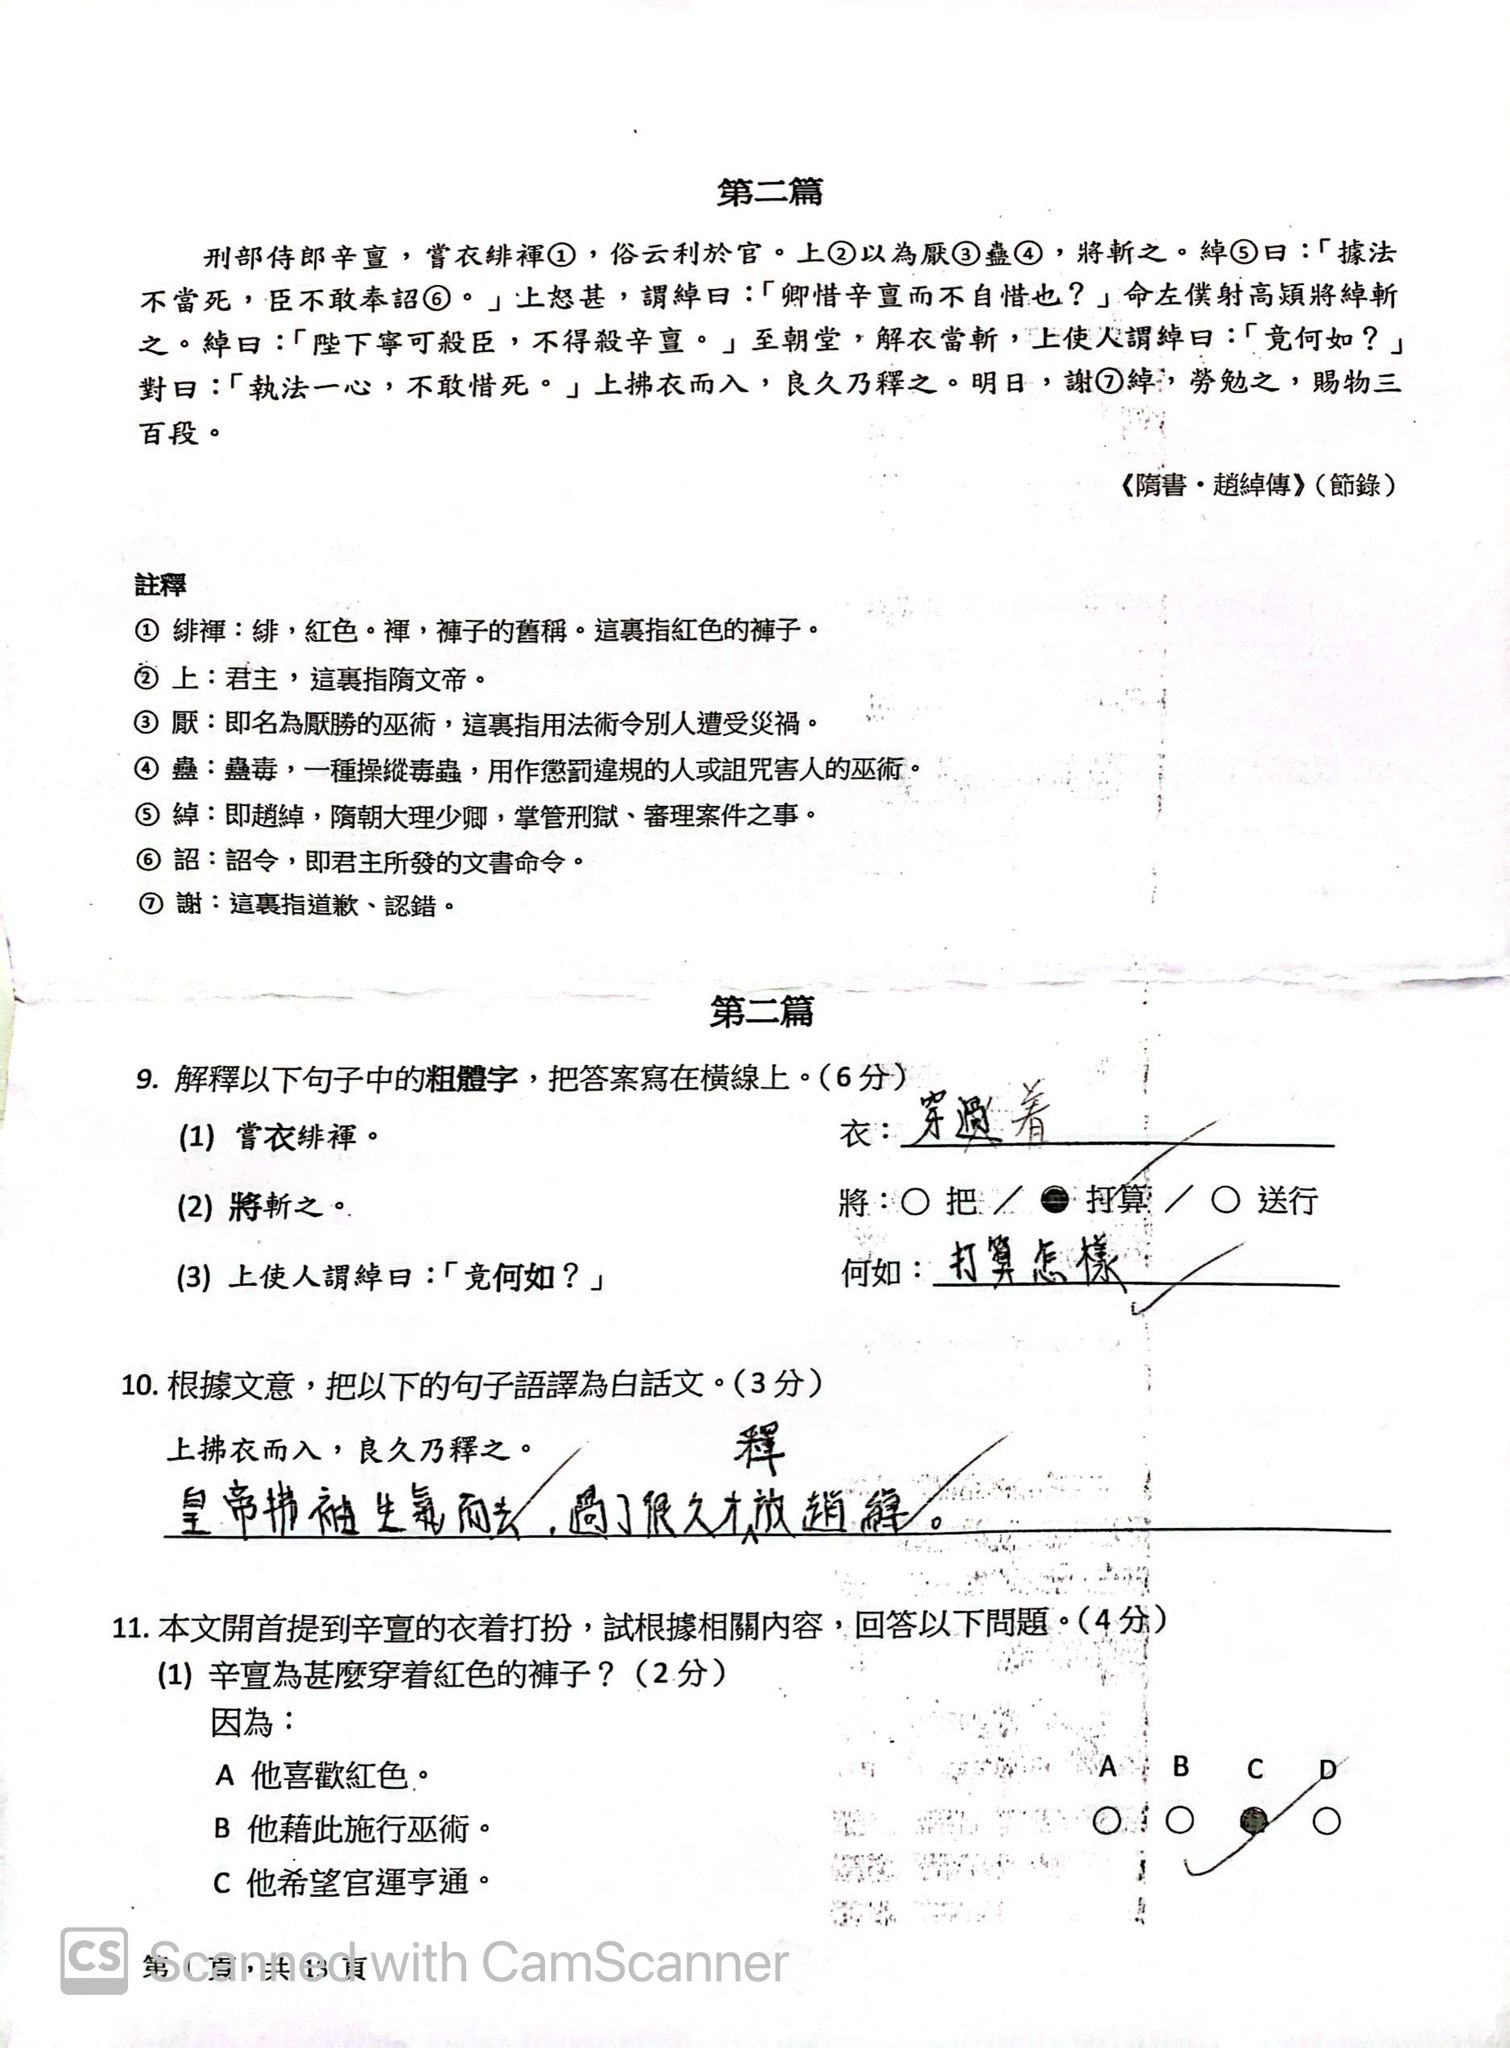 第二篇
刑部侍郎辛亶，嘗衣緋褌①，俗云利於官。上②以為厭③蠱④，將斬之。綽⑤曰：「據法
不當死，臣不敢奉詔⑥。」上怒甚，謂綽曰：「卿惜辛亶而不自惜也？」命左僕射高熲將綽斬
之。綽曰：「陛下寧可殺臣，不得殺辛亶。」至朝堂，解衣當斬，上使人謂綽曰：「竟何如？」
對曰：「執法一心，不敢惜死。」上拂衣而入，良久乃釋之。明日，謝⑦綽，勞勉之，賜物三
百段。
《隋書·趙綽傳》（節錄）
註釋
① 緋褌：緋，紅色。褌，褲子的舊稱。這裏指紅色的褲子。
② 上：君主，這裏指隋文帝。
③ 厭：即名為厭勝的巫術，這裏指用法術令別人遭受災禍。
④ 蠱：蠱毒，一種操縱毒蟲，用作懲罰違規的人或詛咒害人的巫術。
⑤ 綽：即趙綽，隋朝大理少卿，掌管刑獄、審理案件之事。
⑥ 詔：詔令，即君主所發的文書命令。
⑦ 謝：這裏指道歉、認錯。
第二篇
9. 解釋以下句子中的粗體字，把答案寫在橫線上。（6 分）
(1) 嘗衣緋褌。 衣：穿過着
(2) 將斬之。 將：○ 把 ／ ● 打算 ／ ○ 送行
(3) 上使人謂綽曰：「竟何如？」 何如：打算怎樣
10. 根據文意，把以下的句子語譯為白話文。（3 分）
上拂衣而入，良久乃釋之。
皇帝拂袖生氣而去，過了很久才釋放趙綽。
11. 本文開首提到辛亶的衣着打扮，試根據相關內容，回答以下問題。（4 分）
(1) 辛亶為甚麼穿着紅色的褲子？（2 分）
因為：
A 他喜歡紅色。
B 他藉此施行巫術。
C 他希望官運亨通。
A B C D
○ ○ ● ○
第 頁，共 13 頁
CS Scanned with CamScanner